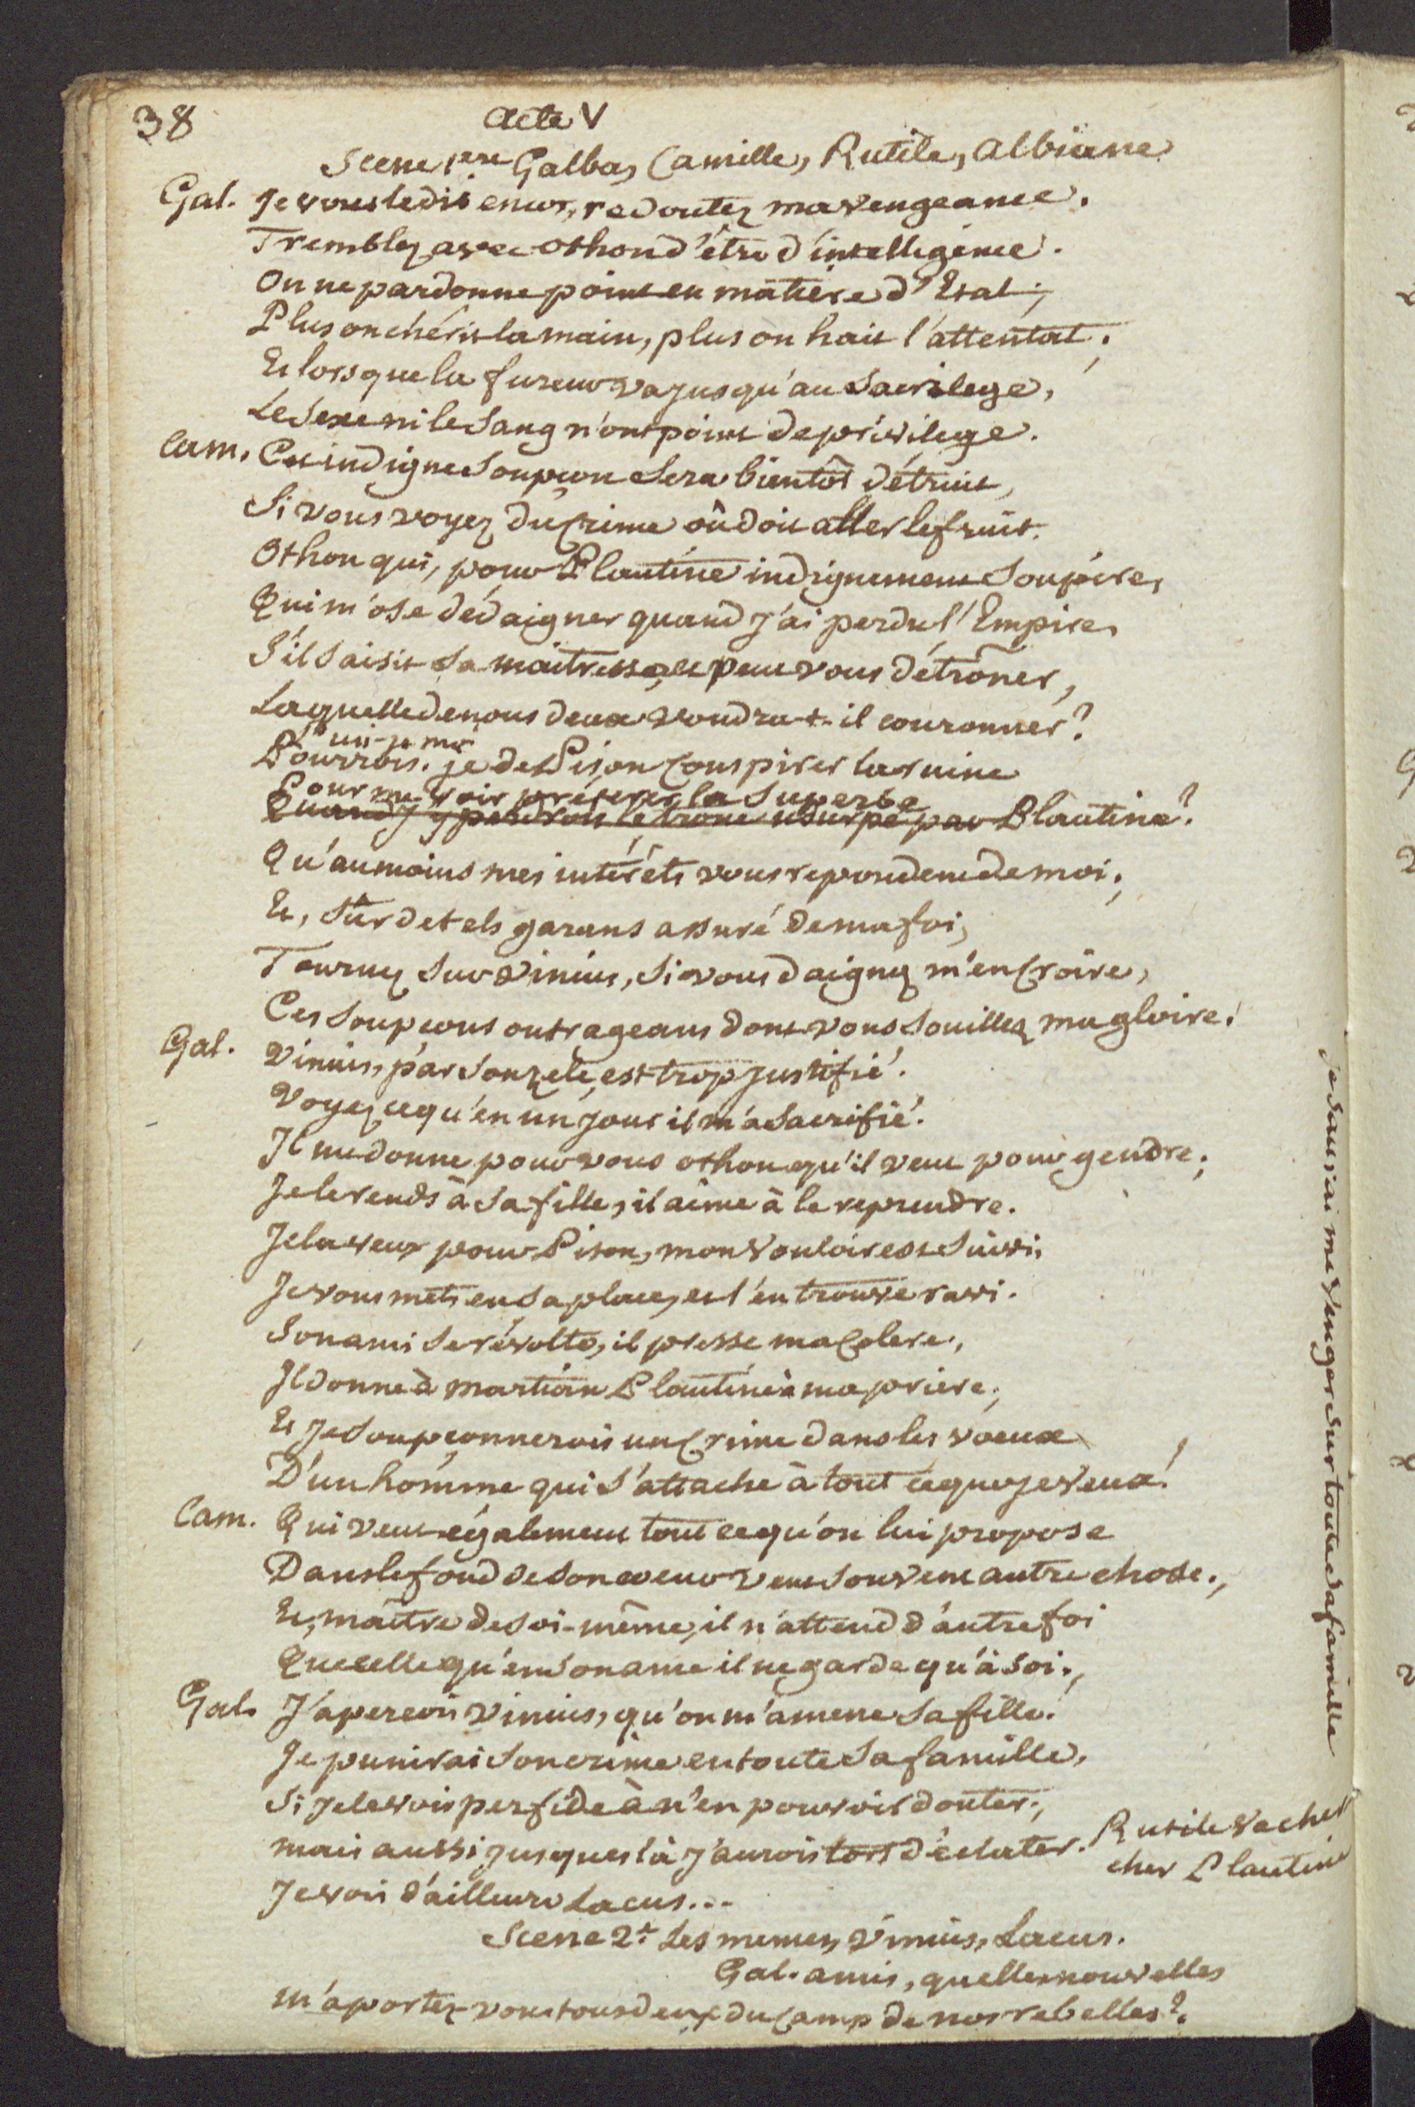 38
Acte V
Scene 1ere Galba, Camille, Rutile, Albiane
Gal. Je vous le dis encor, redoutez ma vengeance.
Tremblez avec Othon d'être d'intelligence.
On ne pardonne point en matière d'Etat;
Plus on chérit la main, plus on hait l'attentat;
Et lorsque la fureur va jusqu'au Sacrilege,
Le Sexe ni le Sang n'ont point de privilege.
Cam. Cet indigne Soupçon Sera bientôt détruit,
Si vous voyez du Crime où doit aller le fruit.
Othon qui, pour Plautine indignement Soupire,
Qui m'ose dédaigner quand j'ai perdu l'Empire,
S'il Saisit Sa maitresse, et peut vous détrôner,
Laquelle de nous deux voudra-t-il couronner?
Puis-je moi
Pourrois-je de Pison Conspirer la ruine
Pour me voir préferer la Superbe
Quand j'y perdrois le trone usurpé par Plautine?
Qu'au moins mes intérêts vous repondent de moi;
Et, Sûr de tels garans assuré de ma foi,
Tournez Sur Vinius, Si vous daignez m'en Croire,
Ces Soupçons outrageans dont vous Souillez ma gloire.
Gal. Vinius, par Son zele, est trop justifié.
Voyez ce qu'en un jour il m'a Sacrifié.
Il me donne pour vous Othon qu'il veut pour gendre;
Je le rends à Sa fille, il aime à le reprendre.
Je la veux pour Pison, mon vouloir est Suivi;
Je vous mets en Sa place, et l'en trouve ravi.
Son ami Se révolte, il presse ma Colere;
Il donne à Martian Plautine à ma priere;
Et je Soupçonnerois un Crime dans les voeux
D'un homme qui S'attache à tout ce que je veux!
Cam. Qui veut également tout ce qu'on lui propose
Dans le fond de Son coeur veut Souvent autre chose;
Et, maître de Soi-même, il n'attend d'autre foi
Que celle qu'en Son ame il ne garde qu'à Soi.
Gal. J'apercois Vinius, qu'on m'amene Sa fille.
Je punirai Son crime en toute Sa famille,
Si je le vois perfide à n'en pouvoir douter;
mais aussi jusques là j'aurois tort d'éclater.
Rutile va cher
cher Plautine
Je vois d'ailleurs Lacus...
Je Saurai me venger Sur toute Sa famille
Scene 2e. Les memes, Vinius, Lacus.
Gal. amis, quelles nouvelles
M'aportez-vous tous deux du Camp de nos rebelles?